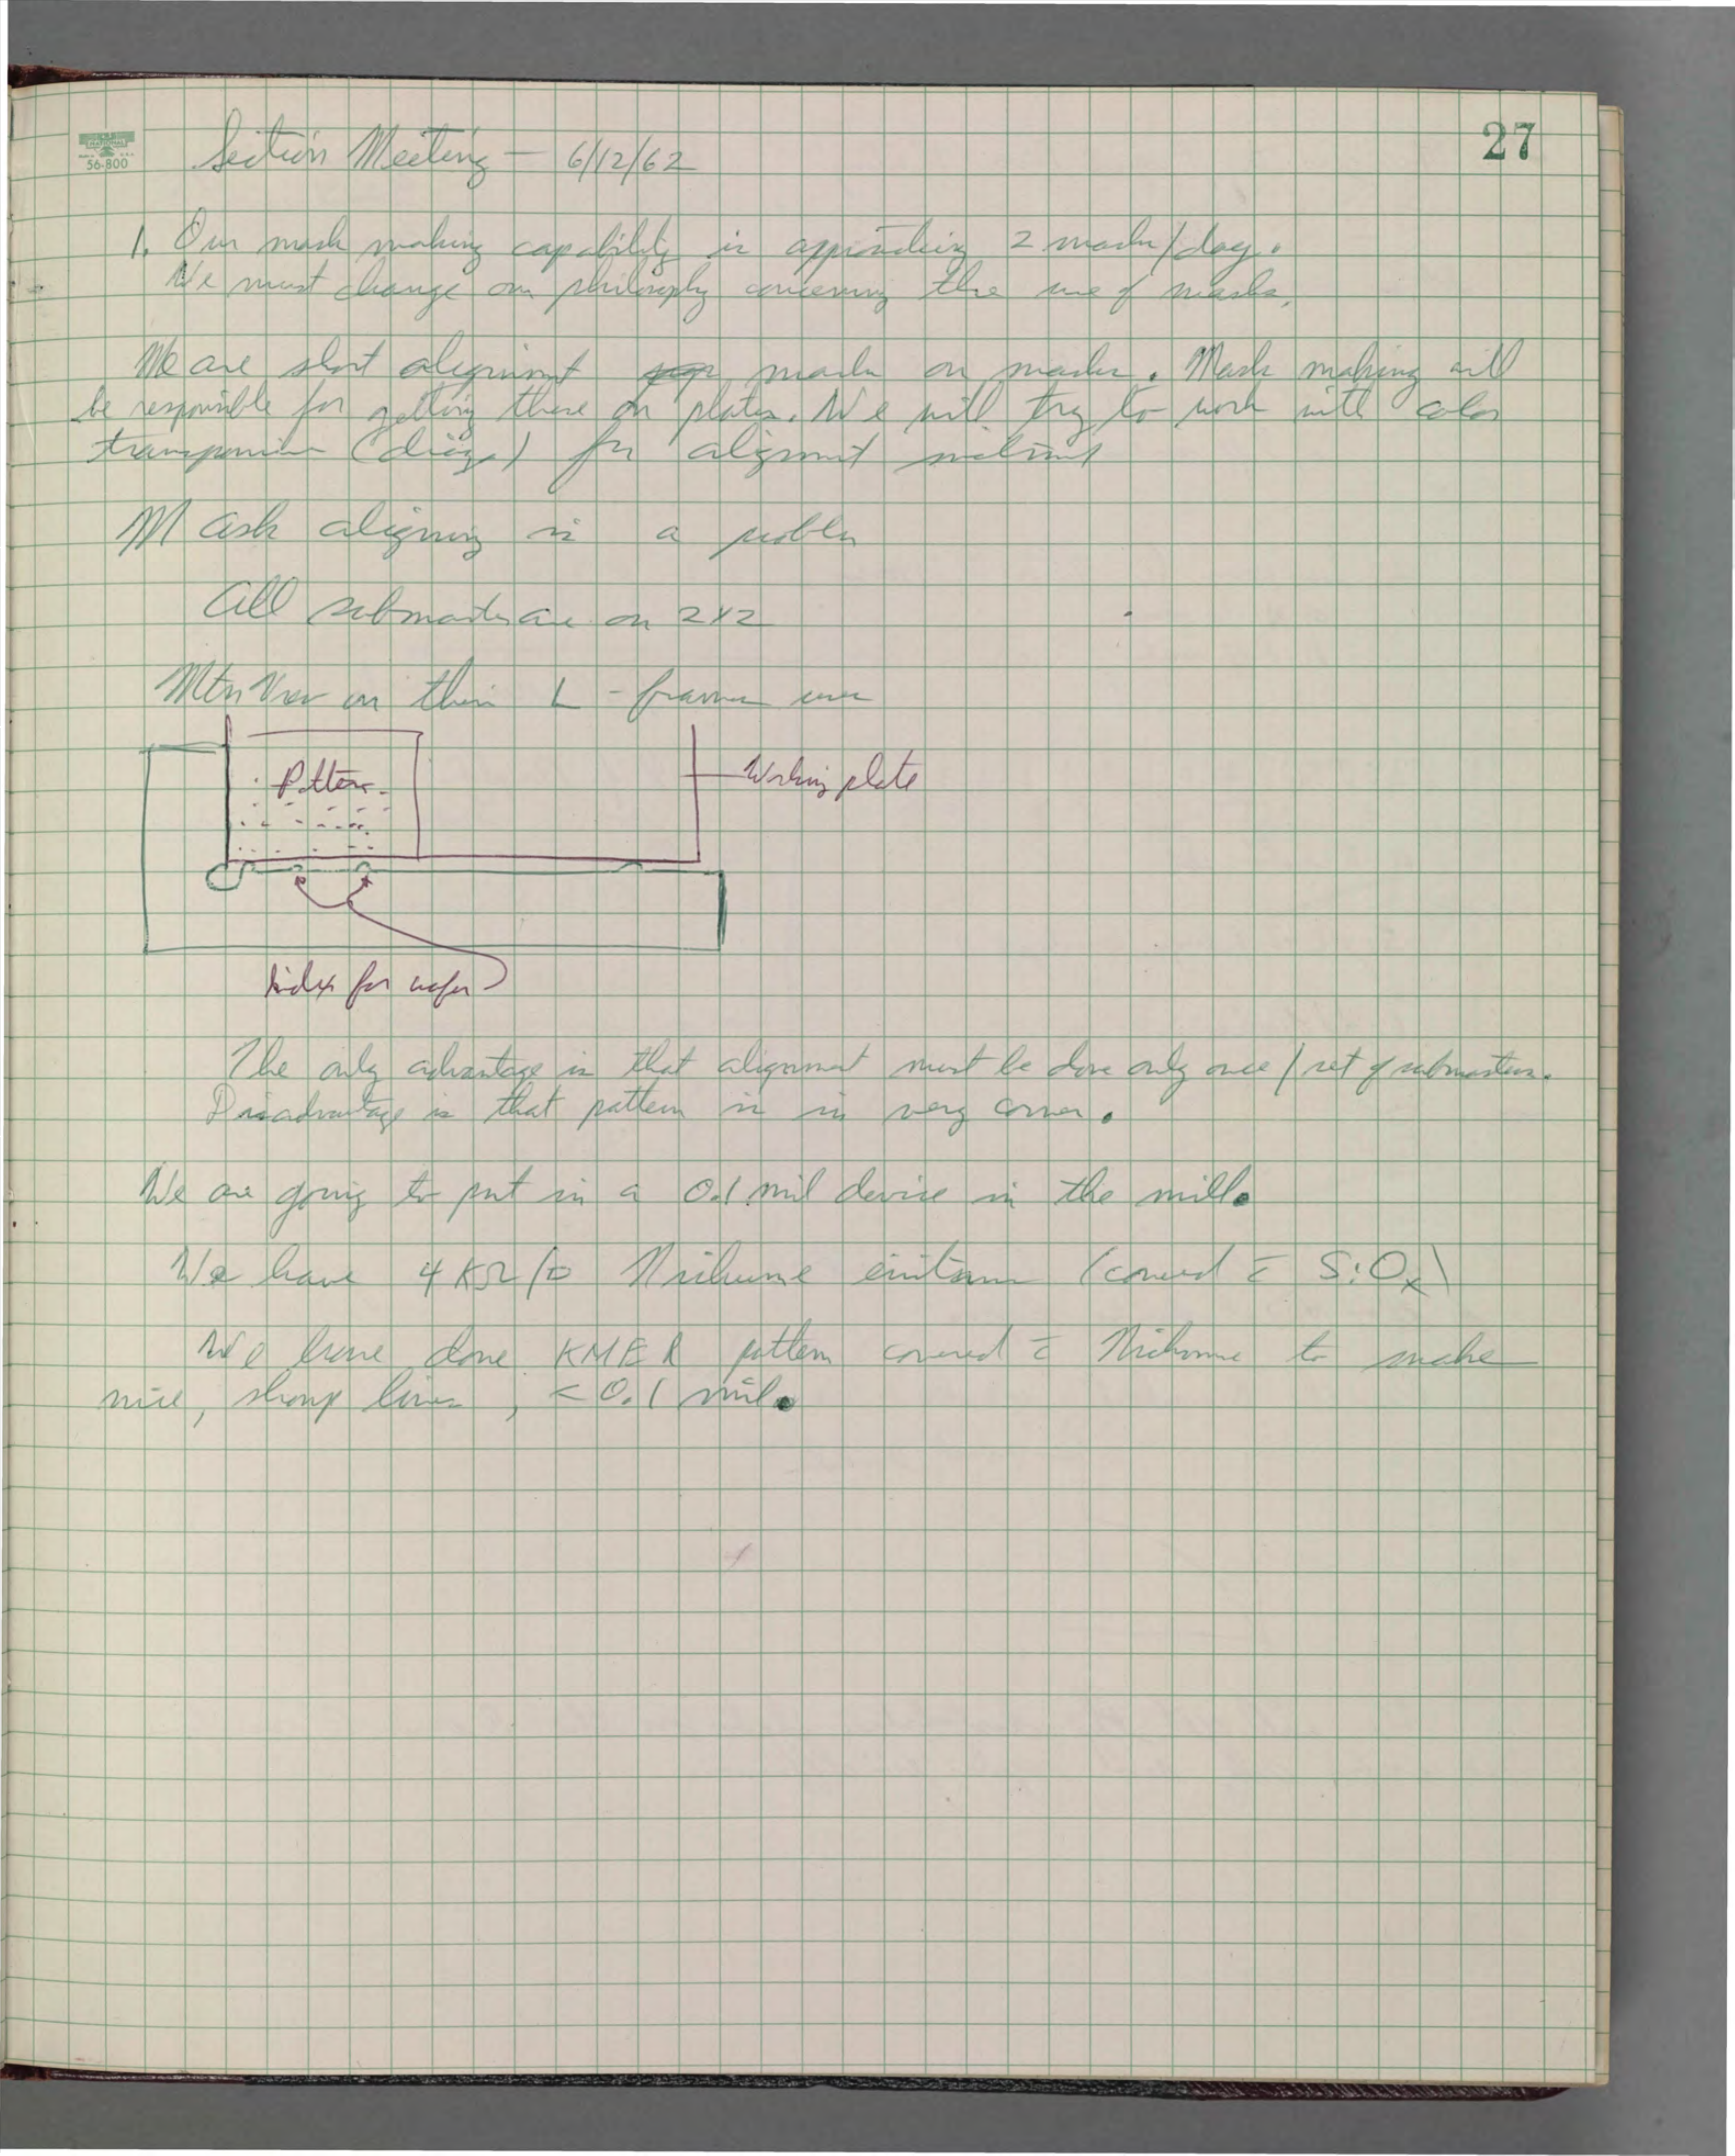 27
NATIONAL
56-800
Section Meeting — 6/12/62
1. Our mask making capability is approaching 2 masks/day.
We must change our philosophy concerning the use of masks.
We are short alignment marks on masks. Mask making will
be responsible for getting these on plates. We will try to work with color
transparencies (diazo) for alignment
Mask aligning is a problem
All submasters are on 2x2
Mtn View on their L-frames use
Pattern
Working plate
Index for wafer
The only advantage is that alignment must be done only once / set of submasters.
Disadvantage is that pattern is in very corner.
We are going to put in a 0.1 mil device in the mill.
We have 4 KΩ/□ Nichrome (covered c̄ SiOx)
We have done KMER pattern covered c̄ Nichrome to make
nice, sharp lines, < 0.1 mil.